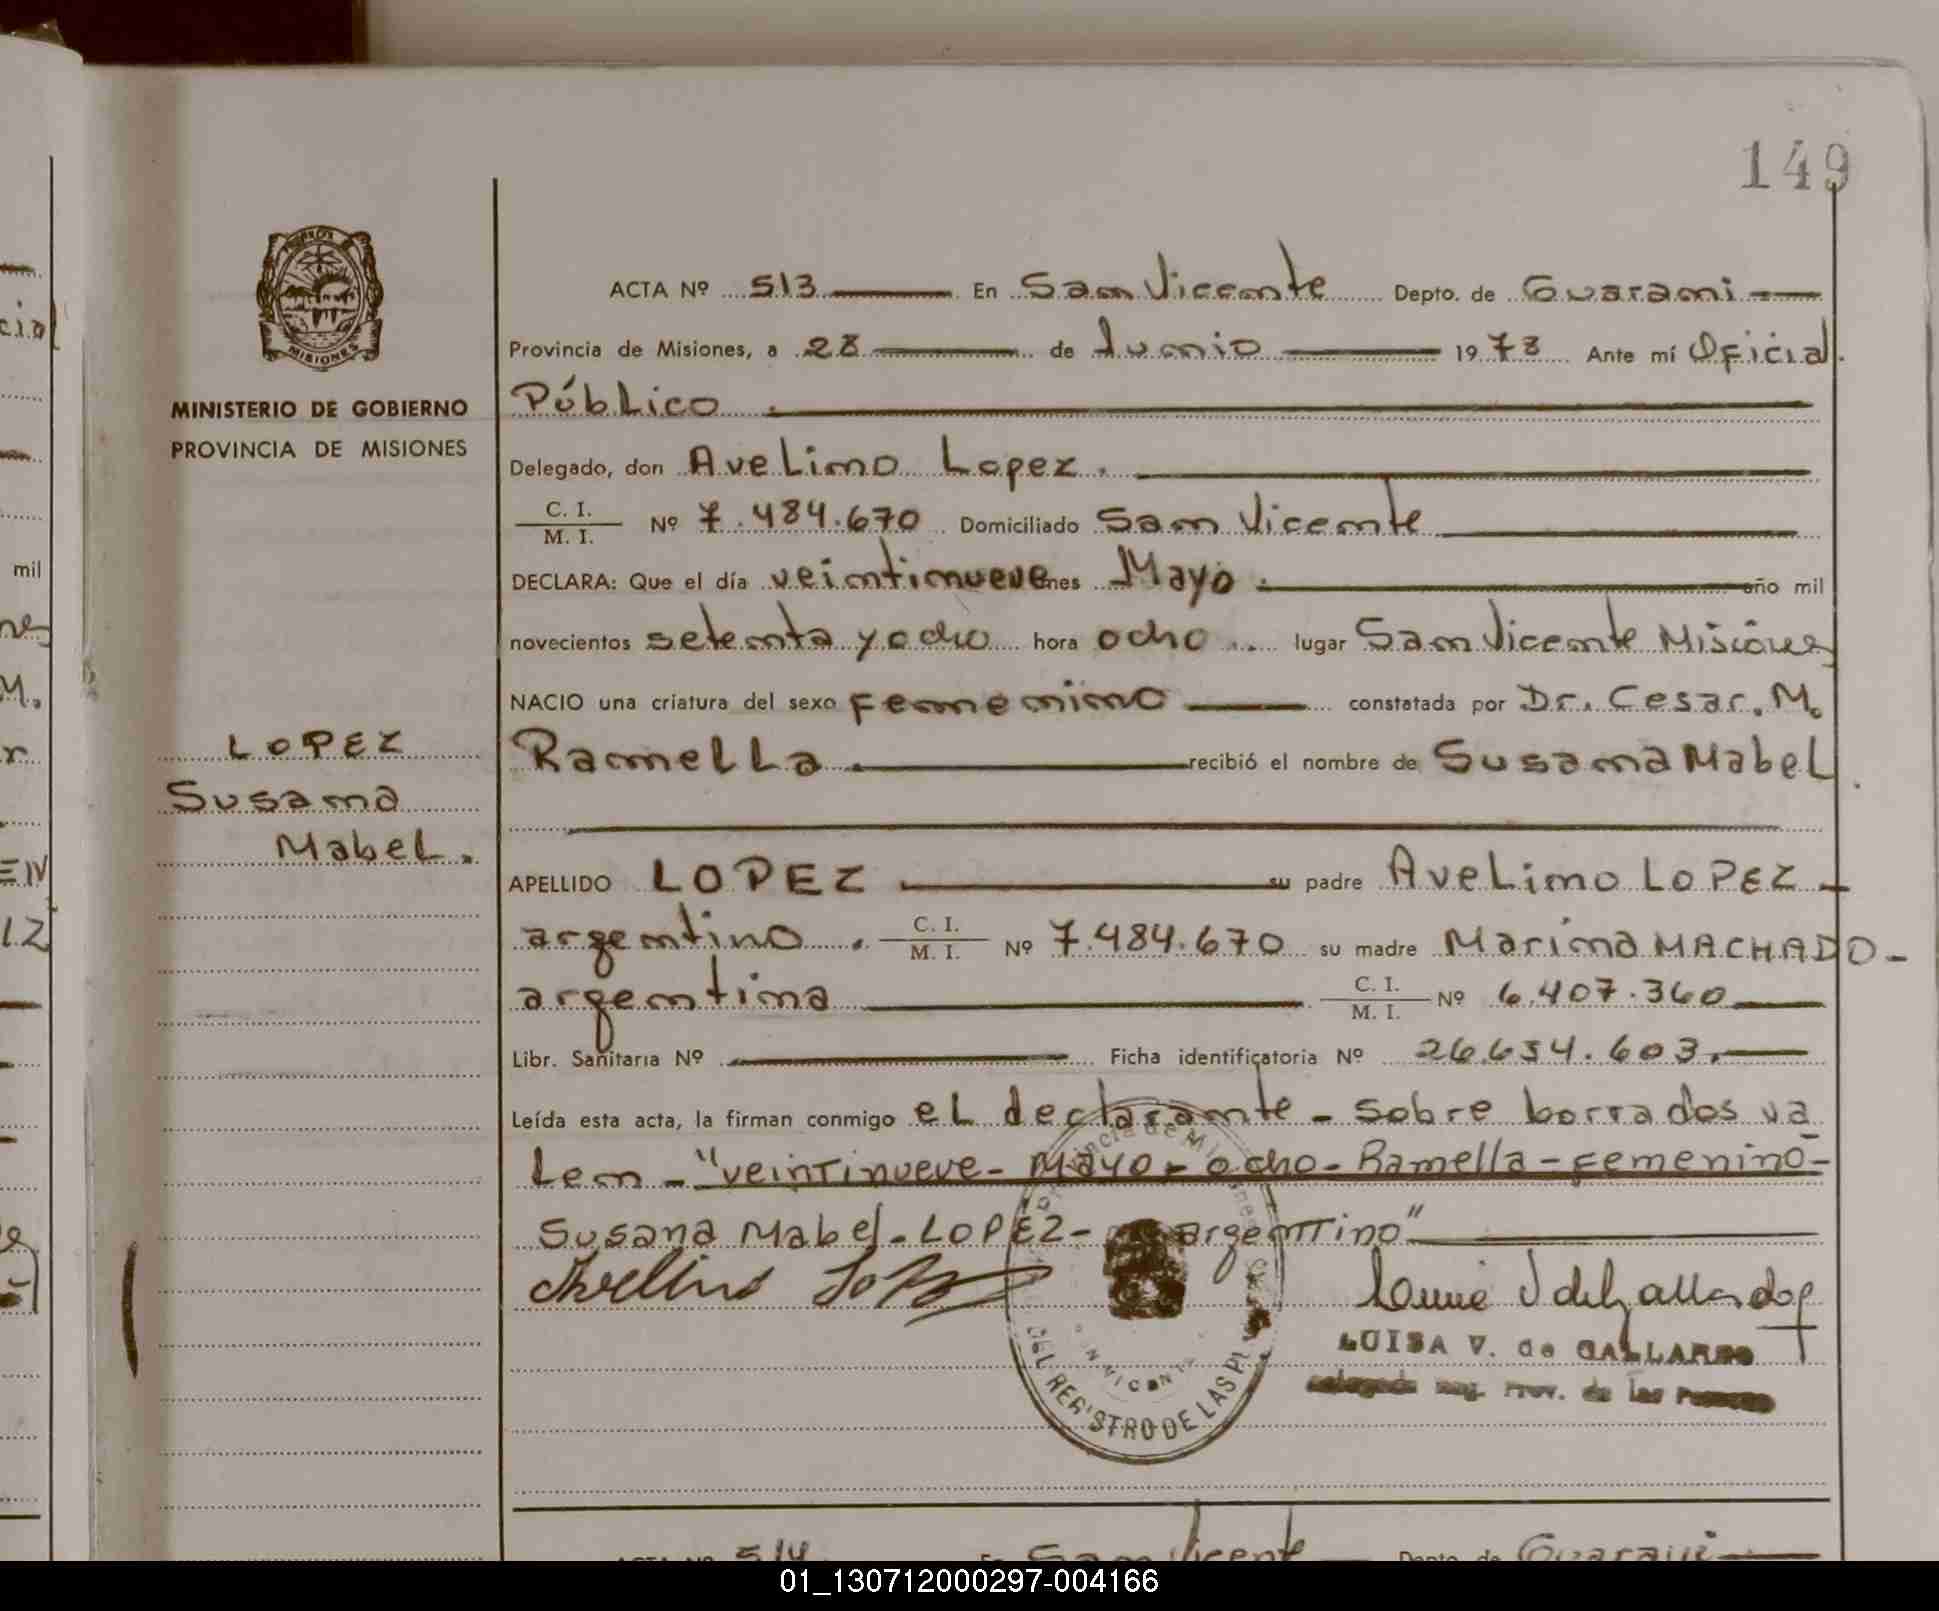 149
MISIONES
MINISTERIO DE GOBIERNO
PROVINCIA DE MISIONES
LOPEZ
Susana
Mabel.
ACTA Nº 513 En San Vicente Depto. de Guarani
Provincia de Misiones, a 28 de Junio 1978 Ante mí Oficial
Público
Delegado, don Avelino Lopez.
C. I.
M. I. Nº 7.484.670 Domiciliado San Vicente
DECLARA: Que el día veintinueve mes Mayo año mil
novecientos setenta y ocho hora ocho lugar San Vicente Misiones
NACIO una criatura del sexo femenino constatada por Dr. Cesar. M.
Ramella recibió el nombre de Susana Mabel
APELLIDO LOPEZ su padre Avelino LOPEZ
argentino. C. I.
M. I. Nº 7.484.670 su madre Marina MACHADO-
argentina C. I.
M. I. Nº 6.407.360
Libr. Sanitaria Nº Ficha identificatoria Nº 26.654.603.
Leída esta acta, la firman conmigo el declarante - sobre borrados va
len - "veintinueve - Mayo - ocho - Ramella - femenino -
Susana Mabel - LOPEZ - argentino"
Avelino Lopez
LUISA V. de GALLARDO
DEL REGISTRO DE LAS
ACTA Nº 514 En San Vicente Depto. de Guarani
mil
01_130712000297-004166